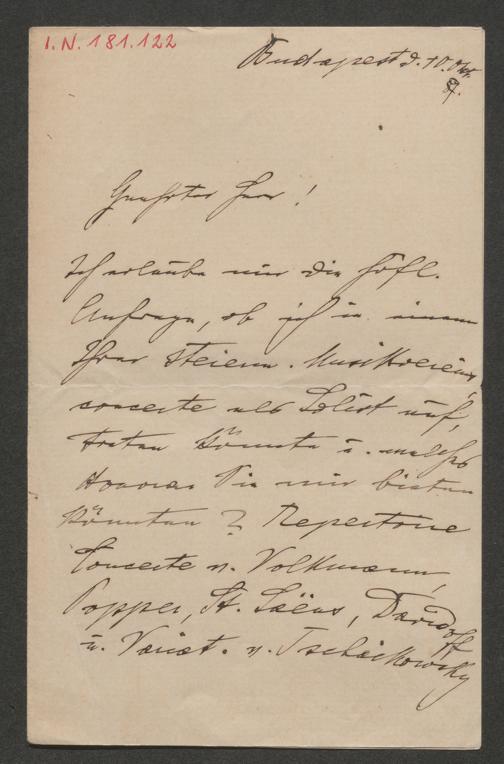 I.N. 181.122
Budapest d. 10. Okt.
89.
Geehrter Herr!
Ich erlaube mir die höfl.
Anfrage, ob ich in einem
Ihrer steierm. Musikvereins
concerte als Solist auf,
treten könnte u. welches
Honorar Sie mir bieten
könnten? Repertoire
Concerte v. Volkmann,
Popper, St. Saëns, Davidoff
u. Variat. v. Tschaikowsky